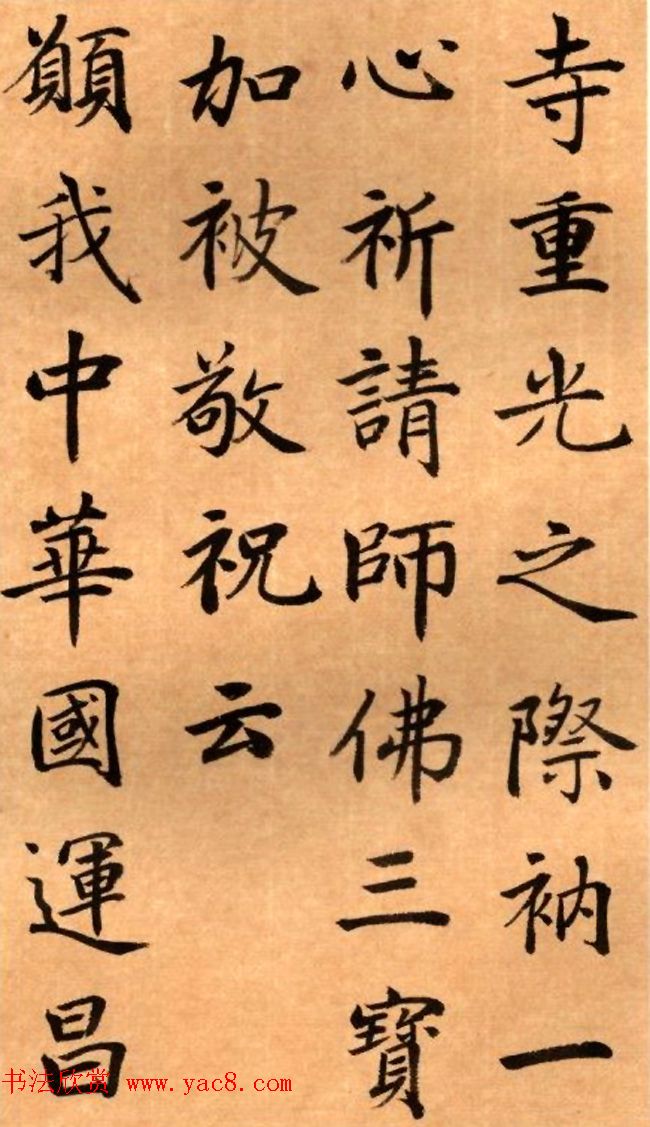 寺重光之際衲一
心祈請師佛三寶
加被敬祝云
願我中華國運昌
书法欣赏 www.yac8.com